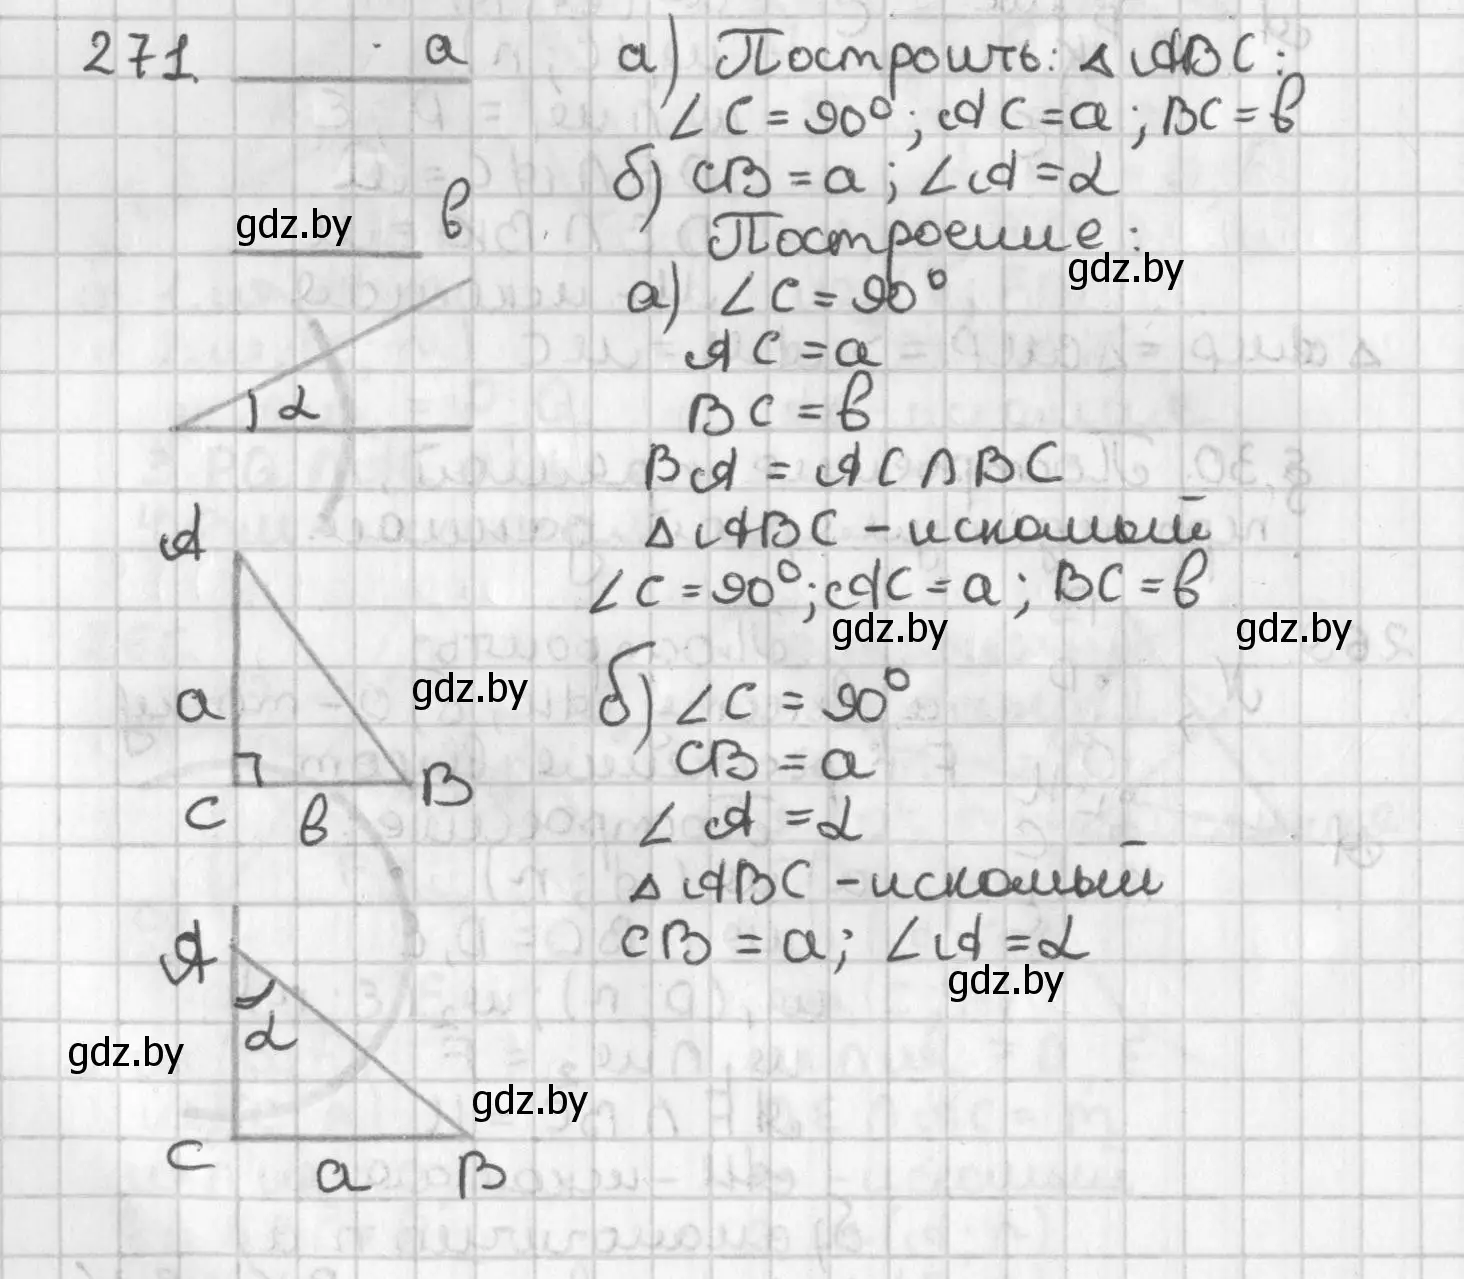 271. a
а) Построить: △ABC:
∠C = 90°; AC = a; BC = b
б) CB = a; ∠A = α
b
gdz.by
Построение:
gdz.by
а) ∠C = 90°
AC = a
BC = b
α
BA = AC ∩ BC
△ABC - искомый
∠C = 90°; AC = a; BC = b
gdz.by
gdz.by
A
a
C
b
B
gdz.by
б) ∠C = 90°
CB = a
∠A = α
△ABC - искомый
CB = a; ∠A = α
gdz.by
A
α
gdz.by
gdz.by
C
a
B